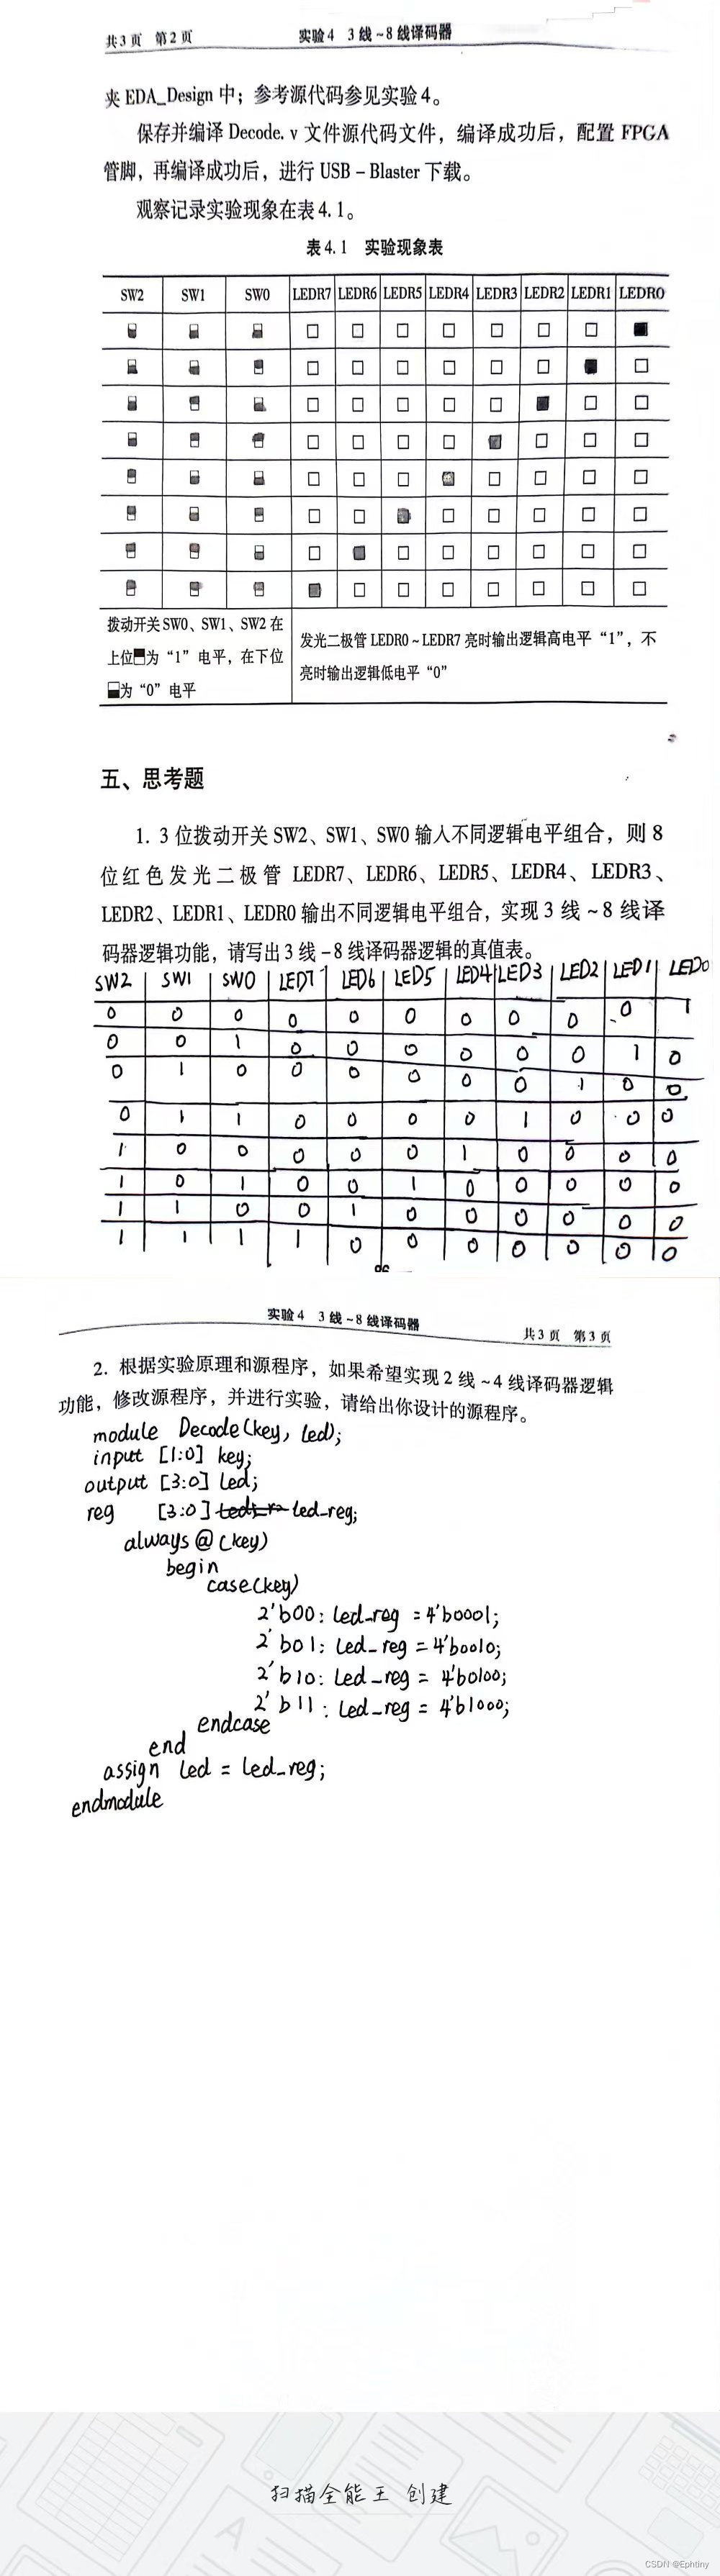 共3页 第2页 实验4 3线~8线译码器
夹 EDA_Design 中；参考源代码参见实验4。
保存并编译 Decode.v 文件源代码文件，编译成功后，配置 FPGA
管脚，再编译成功后，进行 USB-Blaster 下载。
观察记录实验现象在表4.1。
表4.1 实验现象表
SW2 SW1 SW0 LEDR7 LEDR6 LEDR5 LEDR4 LEDR3 LEDR2 LEDR1 LEDR0
拨动开关 SW0、SW1、SW2 在
上位为“1”电平，在下位
为“0”电平
发光二极管 LEDR0~LEDR7 亮时输出逻辑高电平“1”，不
亮时输出逻辑低电平“0”
五、思考题
1. 3位拨动开关 SW2、SW1、SW0 输入不同逻辑电平组合，则8
位红色发光二极管 LEDR7、LEDR6、LEDR5、LEDR4、LEDR3、
LEDR2、LEDR1、LEDR0 输出不同逻辑电平组合，实现3线~8线译
码器逻辑功能，请写出3线-8线译码器逻辑的真值表。
SW2 SW1 SW0 LED7 LED6 LED5 LED4 LED3 LED2 LED1 LED0
0 0 0 0 0 0 0 0 0 0 1
0 0 1 0 0 0 0 0 0 1 0
0 1 0 0 0 0 0 0 1 0 0
0 1 1 0 0 0 0 1 0 0 0
1 0 0 0 0 0 1 0 0 0 0
1 0 1 0 0 1 0 0 0 0 0
1 1 0 0 1 0 0 0 0 0 0
1 1 1 1 0 0 0 0 0 0 0
实验4 3线~8线译码器
共3页 第3页
2. 根据实验原理和源程序，如果希望实现2线~4线译码器逻辑
功能，修改源程序，并进行实验，请给出你设计的源程序。
module Decode(key, led);
input [1:0] key;
output [3:0] led;
reg [3:0] led_reg;
always@(key)
begin
case(key)
2'b00: led_reg = 4'b0001;
2'b01: led_reg = 4'b0010;
2'b10: led_reg = 4'b0100;
2'b11: led_reg = 4'b1000;
endcase
end
assign led = led_reg;
endmodule
扫描全能王 创建
CSDN @Ephtiny